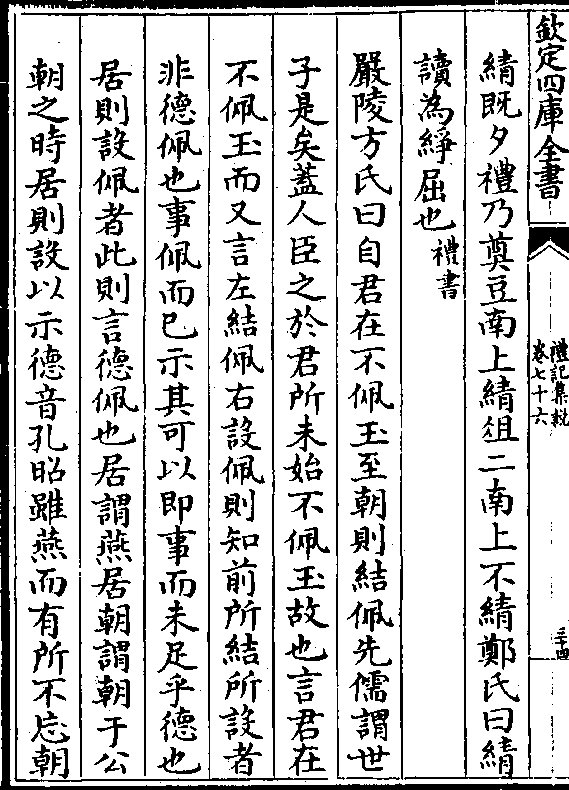 欽定四庫全書
禮記集說
卷七十六
三十四
綪既夕禮乃奠豆南上綪俎二南上不綪鄭氏曰綪
讀為綪屈也禮書
嚴陵方氏曰自君在不佩玉至朝則結佩先儒謂世
子是矣蓋人臣之於君所未始不佩玉故也言君在
不佩玉而又言左結佩右設佩則知前所結所設者
非德佩也事佩而已示其可以即事而未足乎德也
居則設佩者此則言德佩也居謂燕居朝謂朝于公
朝之時居則設以示德音孔昭雖燕而有所不忘朝